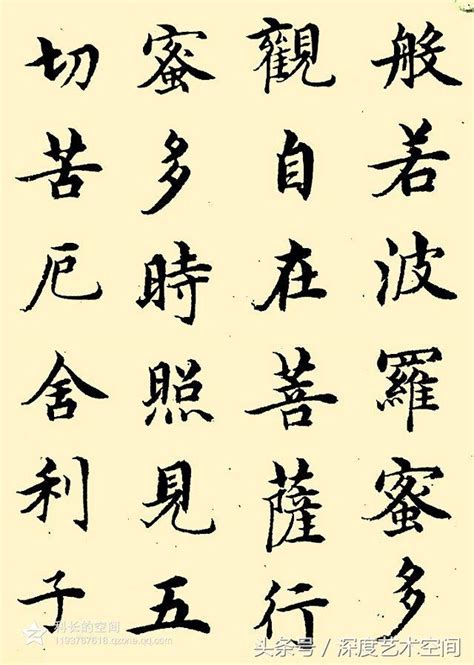 般若波羅蜜多
觀自在菩薩行
蜜多時照見五
切苦厄舍利子
科长的空间
1193767616.qzone.qq.com
头条号／深度艺术空间